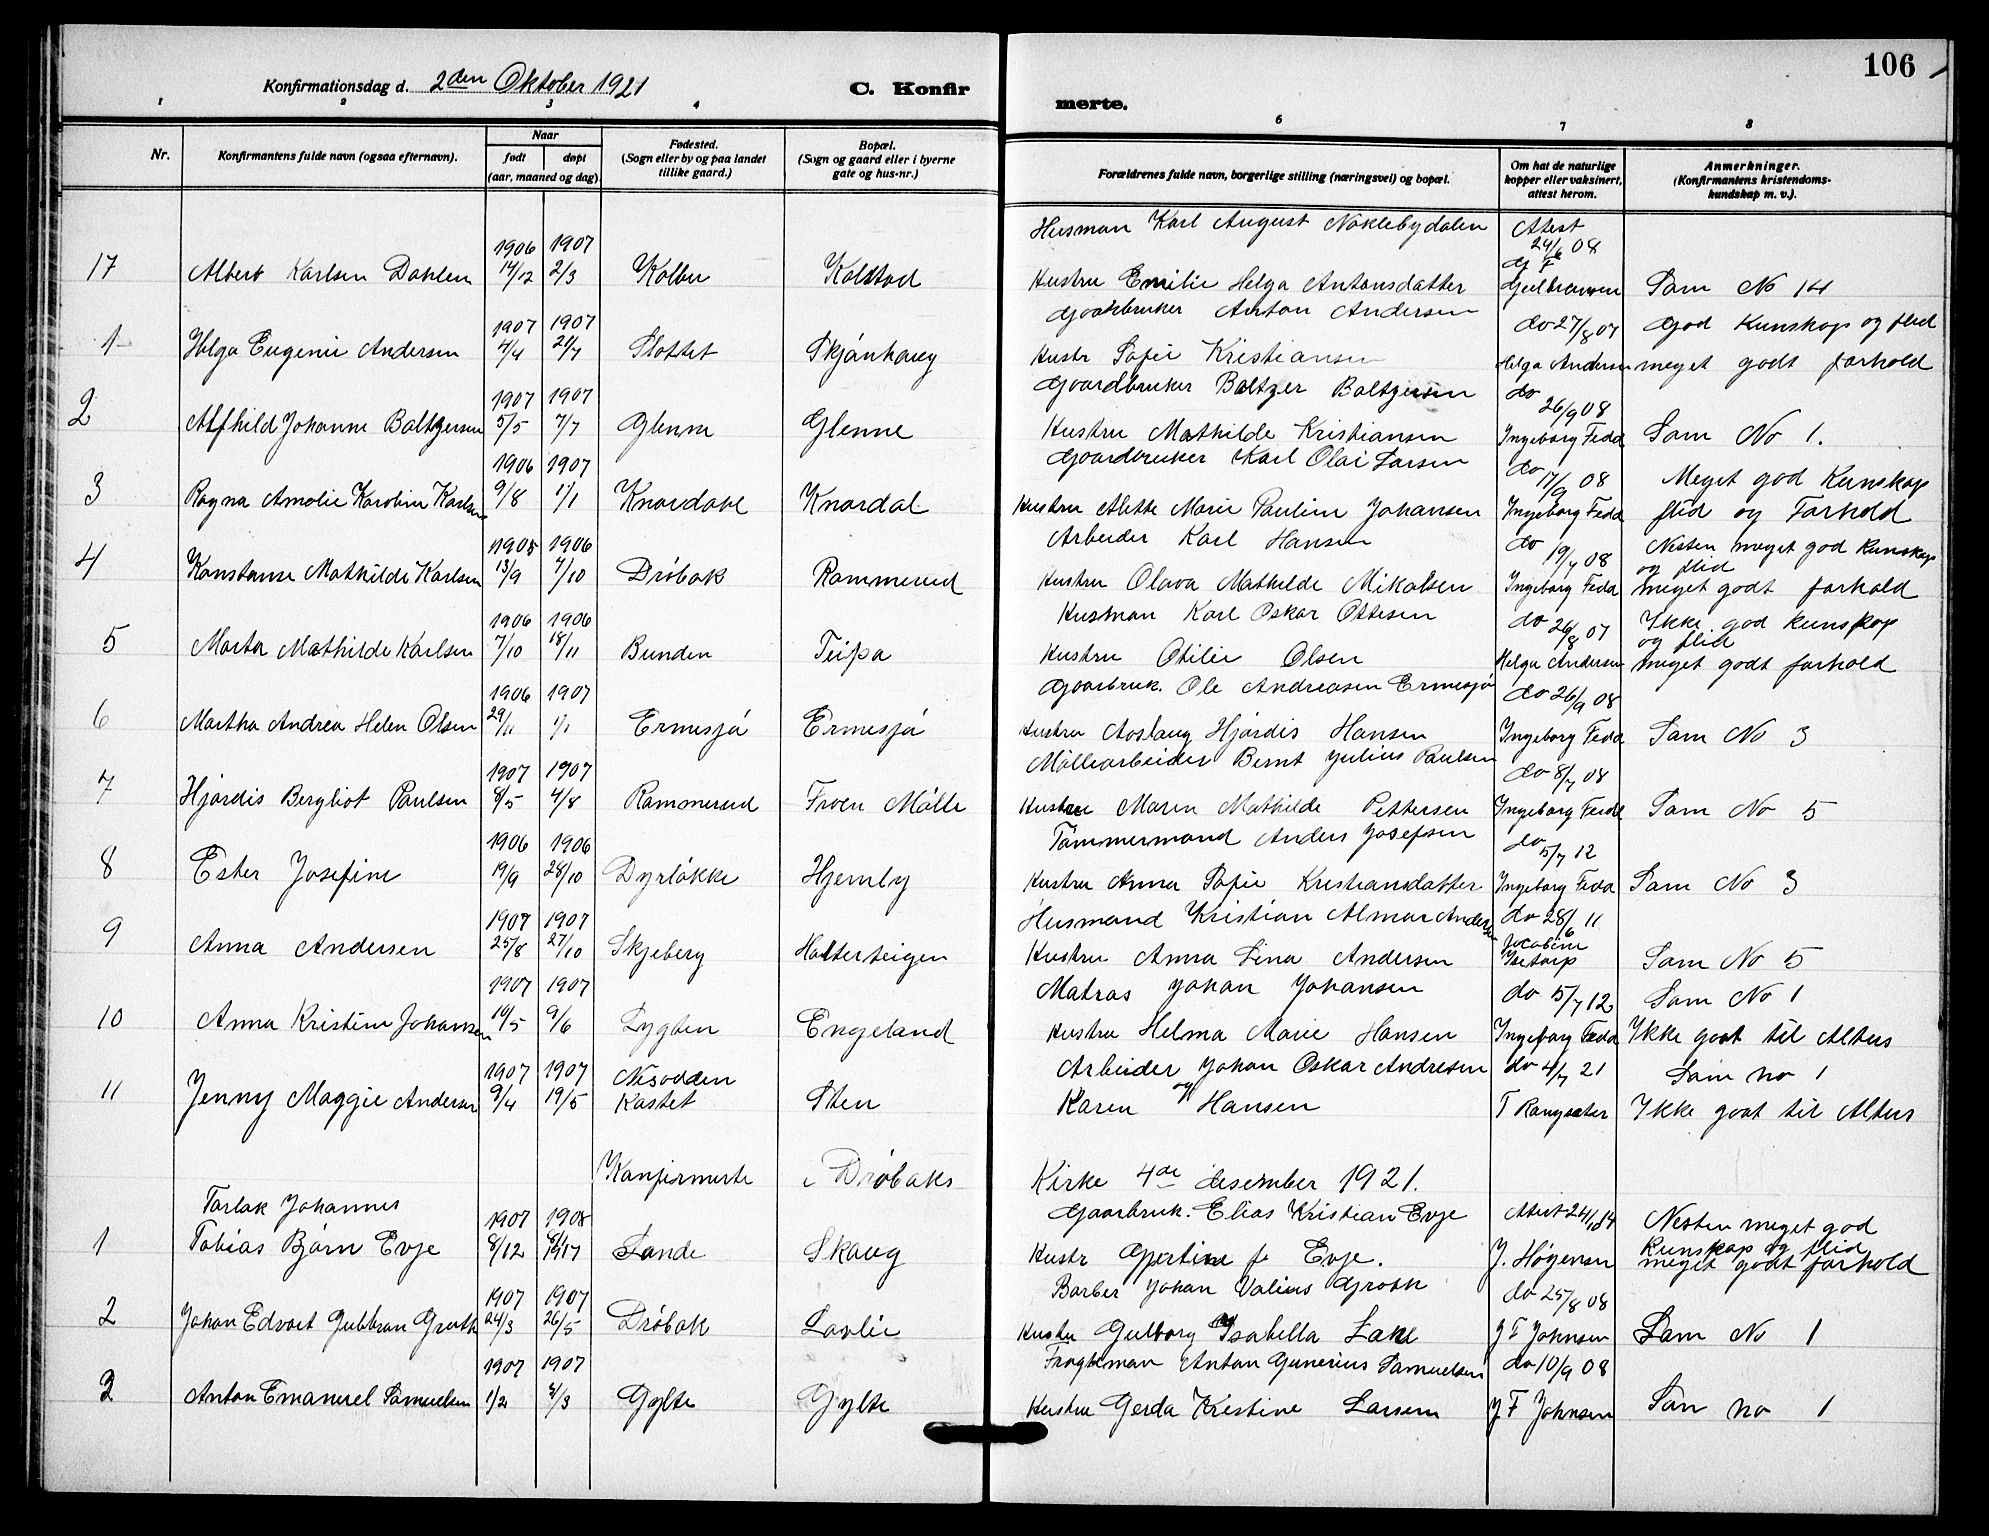 106
Konfirmationsdag d. 2den Oktober 1921
C. Konfirmerte.
1 2 3 4 6 7 8
Nr.
Konfirmantens fulde navn (ogsaa efternavn).
Naar
født døpt
(aar, maaned og dag).
Fødested.
(Sogn eller by og paa landet
tillike gaard.)
Bopæl.
(Sogn og gaard eller i byerne
gate og hus-nr.)
Forældrenes fulde navn, borgerlige stilling (næringsvei) og bopæl.
Om hat de naturlige
kopper eller vaksinert,
attest herom.
Anmerkninger.
(Konfirmantens kristendoms-
kundskap m. v.).
Husman Karl August Naklebydalen Attest
1906 1907 24/6 08
17 Albert Karlsen Dahlen 14/12 2/3 Kolbu Kolstad Hustru Emilie Helga Antonsdatter Gulbransen Sam No 14
1907 1907 Gaardbruker Anton Andersen do 27/8 07 God Kunskap og flid
1 Helga Eugenie Andersen 4/4 21/7 Slottet Skjånhaug Hustr Sofie Kristiansen Helga Andersen meget godt forhold
1907 1907 Gaardbruker Baltzer Baltzersen do 26/9 08
2 Alfhild Johanne Baltzersen 5/5 7/7 Glenne Glenne Hustru Mathilde Kristiansen Ingeborg Fedd Sam No 1.
1906 1907 Gaardbruker Karl Olai Larsen do 17/9 08 Meget god Kunskap
3 Ragna Amalie Karoline Karlsen 9/8 1/1 Knardahl Knardal Hustru Alette Marie Pauline Johansen Ingeborg Fedd flid og Forhold
1905 1906 Arbeider Karl Hansen do 19/7 08 Nesten meget god Kunskap
og flid
4 Konstanse Mathilde Karlsen 13/9 7/10 Dröbak Rammerud Hustru Olava Mathilde Mikalsen Ingeborg Fedd meget godt forhold
1906 1906 Husman Karl Oskar Ottesen do 26/8 07 Ikke god kunskap
og flid
5 Marta Mathilde Karlsen 7/10 18/11 Bunden Teipa Hustru Otilie Olsen Helga Andersen meget godt forhold
1906 1907 Gaarbruk. Ole Andreasen Ermesjö do 26/9 08
6 Martha Andrea Helen Olsen 29/11 1/1 Ermesjö Ermesjö Hustru Aaslaug Hjördis Hansen Ingeborg Fedd Sam No 3
1907 1907 Möllearbeider Bernt Julius Paulsen do 8/7 08
7 Hjördis Bergliot Paulsen 8/5 4/8 Rammerud Froen Mölle Hustru Maren Mathilde Pettersen Ingeborg Fedd Sam No 5
1906 1906 Tömmermand Anders Josefsen do 5/7 12
8 Ester Josefine 19/9 28/10 Dyrlökke Hjemly Hustru Anna Sofie Kristiansdatter Ingeborg Fedd Sam No 3
1907 1907 Husmand Kristian Almar Andersen do 28/6 11
9 Anna Andersen 25/8 27/10 Skjeberg Holterteigen Hustru Anna Lina Andersen Jacobine Sam No 5
1907 1907 Matros Johan Johansen do 5/7 12 Sam No 1
10 Anna Kristine Johansen 10/5 9/6 Lygten Engeland Hustru Helma Marie Hansen Ingeborg Fedd Ikke gaat til Alters
1907 1907 Nesodden Arbeider Johan Oskar Andresen do 4/7 21 Sam no 1
11 Jenny Maggie Andersen 9/4 19/5 Kastet Sten og Karen Hansen T Rangsæter Ikke gaat til Alters
Konfirmerte i Dröbaks Kirke 4de desember 1921.
Tarlak Johannes 1907 1908 Gaarbruk. Elias Kristian Evje Attest 24/1 14 Nesten meget god
kunskap og flid
1 Tobias Bjørn Evje 8/12 Sande Skaug Hustr Gjertine f. Evje. J. Høgensen meget godt forhold
1907 1907 Barber Johan Valius Groth do 25/8 08
2 Johan Edvart Gubbran Groth 24/3 26/5 Dröbak Lavlie Hustru Gulborg Isabella Lake J F Johnsen Sam No 1
1907 1907 Fragtman Anton Gunerius Samuelsen do 10/9 08
3 Anton Emanuel Samuelsen 1/2 8/3 Gylte Gylte Hustru Gerda Kristine Larsen J F Johnsen Sam no 1